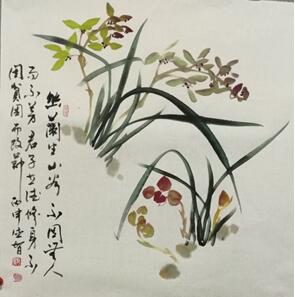 幽蘭生山谷不因無人
而不芳君子立德修身不
因貧困而改節丙申